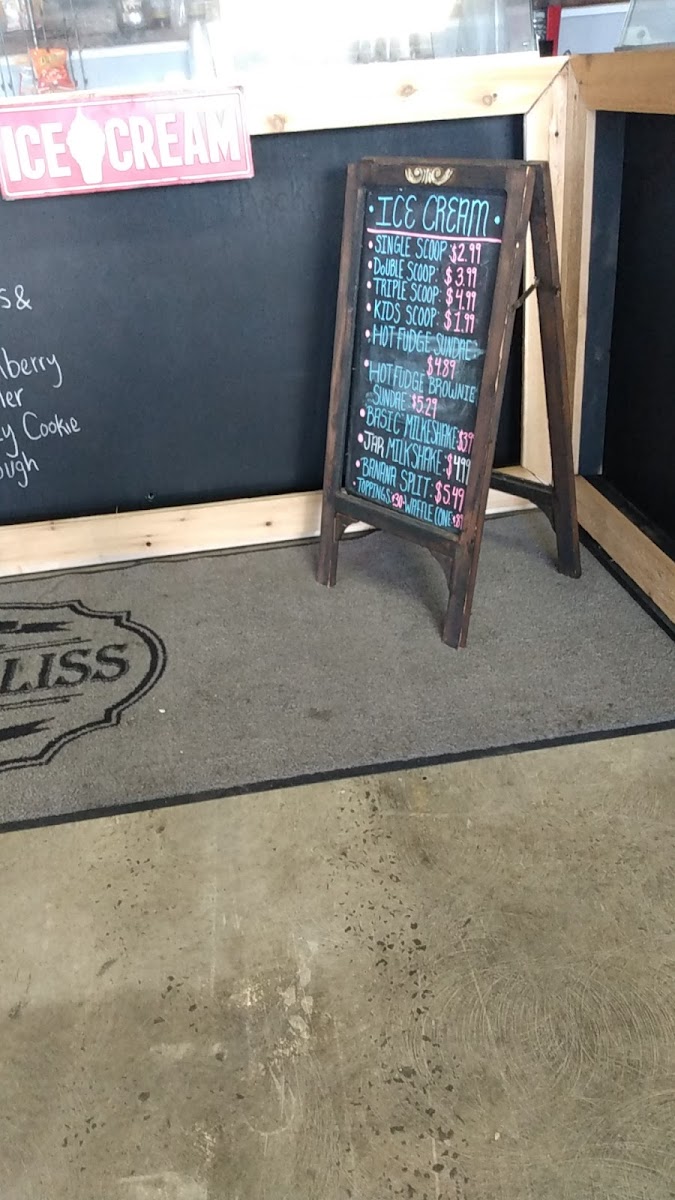 ICE CREAM
s&
berry
ler
y Cookie
ough
ICE CREAM
SINGLE SCOOP: $2.99
DOUBLE SCOOP: $3.99
TRIPLE SCOOP: $4.99
KIDS SCOOP: $1.99
HOT FUDGE SUNDAE:
$4.89
HOT FUDGE BROWNIE
SUNDAE $5.29
BASIC MILKESHAKE:
JAR MILKSHAKE: $4.99
BANANA SPLIT: $5.49
TOPPINGS: WAFFLE CONE:
LISS